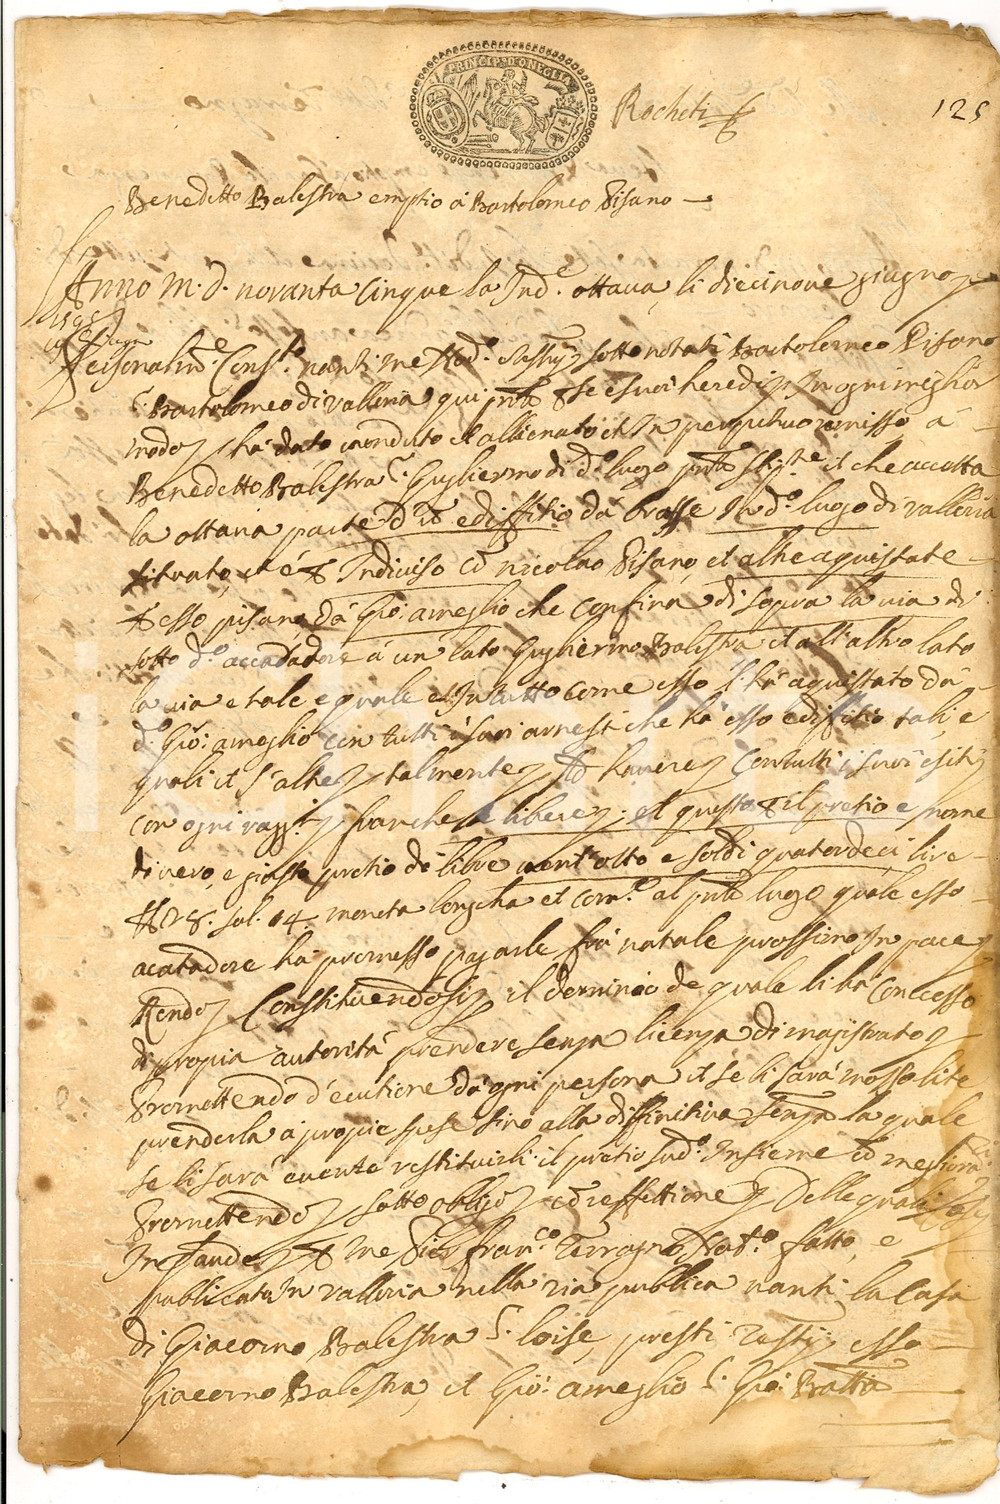 PRINCIP. D'ONEGLIA
Rocheti
125
Benedetto Balestra emptio à Bartolomeo Pisano
Anno M.D. novanta cinque la Ind.e ottava, li diecinove giugno
1595
19 giugn
Personalm.e Const.o nanti me Nod.o sotto notati Bartolomeo Pisano
q. Bartolomeo di valleria qui p se e suoi heredi In ogni miglior
modo ha dato venduto et allienato et In perpetuo rimisso à
Benedetto Balestra q. Gugliermo di d.o luogo il che accetta
la ottava parte d'un ediffitio da brasse In d.o luogo di valleria
situato, et é p Indiviso cū nicolao Pisano et altre aquistate
p esso pisano dà Giō: ameglio che confina di sopra la via di
sotto d.o accatadore à un lato Gugliermo Balestra et all'altro lato
la via e tale e quale et In tutto come esso l'hà aquistato dà
d.o Giō: ameglio con tutti i suoi arnesi che hà esso edifitio tali, e
quali et talmente Ad havere Con tutti i suoi esiti
con ogni ragg. franche e libere et questo p il pretio e nome
di vero, e giusto pretio de libre vent'otto e soldi quatordeci lire
28. sol. 14. moneta longha et corr.e al luogo quale esso
acatadore hà promesso pagarle frà natale prossimo In pace
Rendo Constituendosi il dominio de quale li hà Concesso
di propria autorità prendere senza licenza di magistrato
Promettendo d'evitione dà ogni persona et se li sarà mosso lite
prenderla à proprie spese sino alla diffinitiva senza la quale
se li sarà evente restituirli il pretio sud.o Insieme cō megliora
Promettendo sotto obligo cō reffettione Delle quali cose
p me Pier fran.co Terragno Nod.o fatto, e
publicato In valleria nella via publica nanti la Casa
di Giacomo Balestra q. loise, presti Testij esso
Giacomo Balestra, et Giō: ameglio q. Giō: Batta